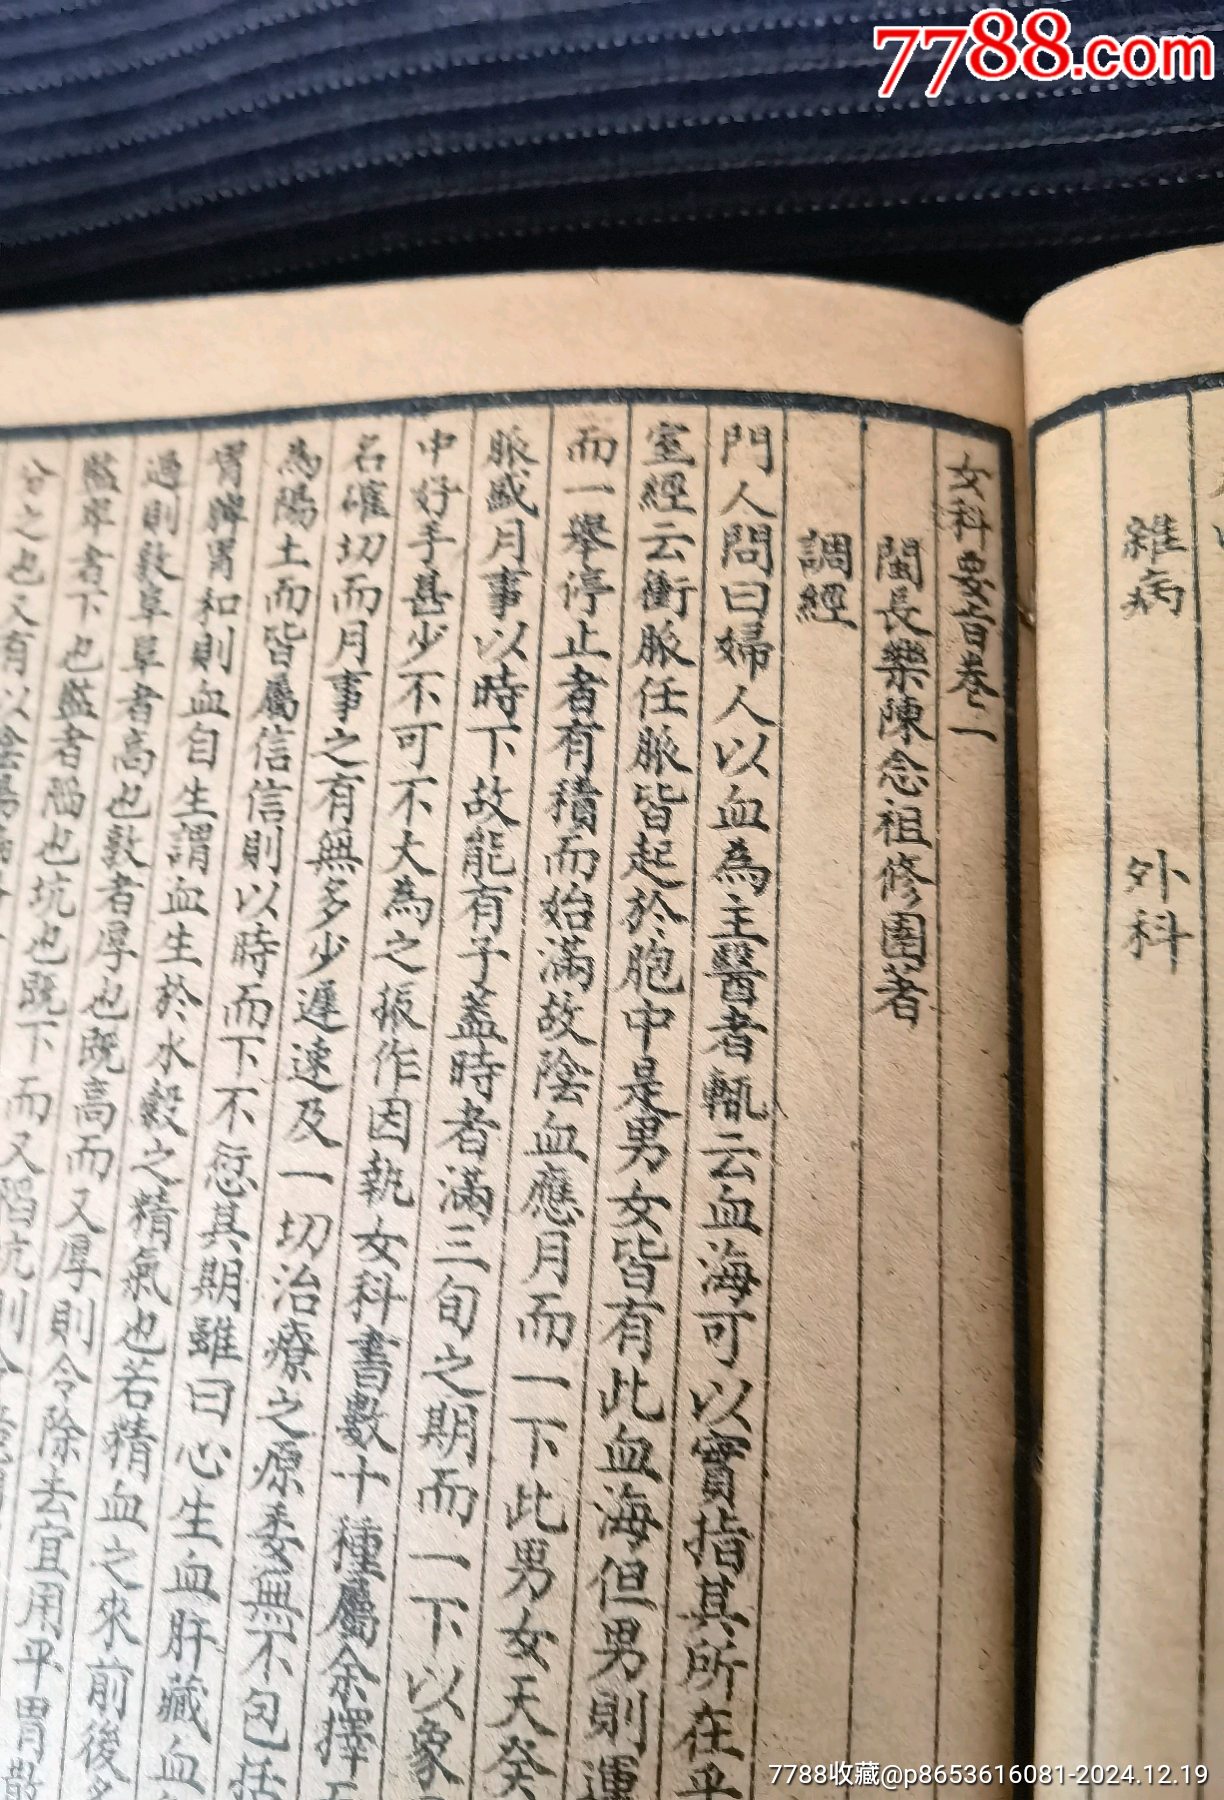 7788.com
雜病
外科
女科要旨卷一
閩長樂陳念祖修園著
調經
門人問曰婦人以血為主醫者輒云血海可以實指其所在乎
室經云衝脈任脈皆起於胞中是男女皆有此血海但男則運
而一舉停止者有積而始滿故陰血應月而一下此男女天癸
脈盛月事以時下故能有子蓋時者滿三旬之期而一下以象
中好手甚少不可不大為之振作因執女科書數十種屬余擇
名確切而月事之有無多少遲速及一切治療之原委無不包括
為陽土而皆屬信信則以時而下不愆其期雖曰心生血肝藏血
胃脾胃和則血自生謂血生於水穀之精氣也若精血之來前後
過則敦阜阜者高也敦者厚也既高而又厚則令除去宜用平胃散
監卑者下也監者陷也坑也既下而又陷坑則令
分之也又有以陰陽
7788收藏@p8653616081-2024.12.19